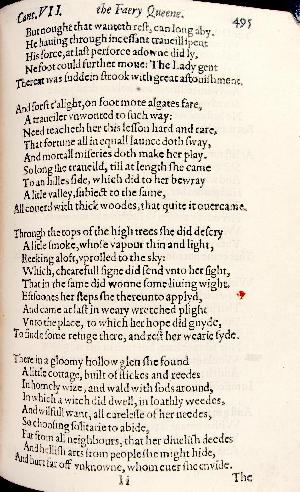 Cant. VII.
the Faery Queene.
495
But nought that wanteth rest, can long aby.
He hauing through incessant traueill spent
His force, at last perforce adowne did ly,
Ne foot could further moue: The Lady gent
Thereat was suddein strook with great astonishment.
And forst t'alight, on foot mote algates fare,
A traueiler vnwonted to such way:
Need teacheth her this lesson hard and rare,
That fortune all in equall launce doth sway,
And mortall miseries doth make her play.
So long she traueild, till at length she came
To an hilles side, which did to her bewray
A litle valley, subiect to the same,
All couerd with thick woodes, that quite it ouercame.
Through the tops of the high trees she did descry
A litle smoke, whose vapour thin and light,
Reeking aloft, vprolled to the sky:
Which, chearefull signe did send vnto her sight,
That in the same did wonne some liuing wight.
Eftsoones her steps she thereunto applyd,
And came at last in weary wretched plight
Vnto the place, to which her hope did guyde,
To finde some refuge there, and rest her wearie syde.
There in a gloomy hollow glen she found
A litle cottage, built of stickes and reedes
In homely wize, and wald with sods around,
In which a witch did dwell, in loathly weedes,
And wilfull want, all carelesse of her needes,
So choosing solitarie to abide,
Far from all neighbours, that her diuelish deedes
And hellish arts from people she might hide,
And hurt far off vnknowne, whom euer she envide.
Ii
The